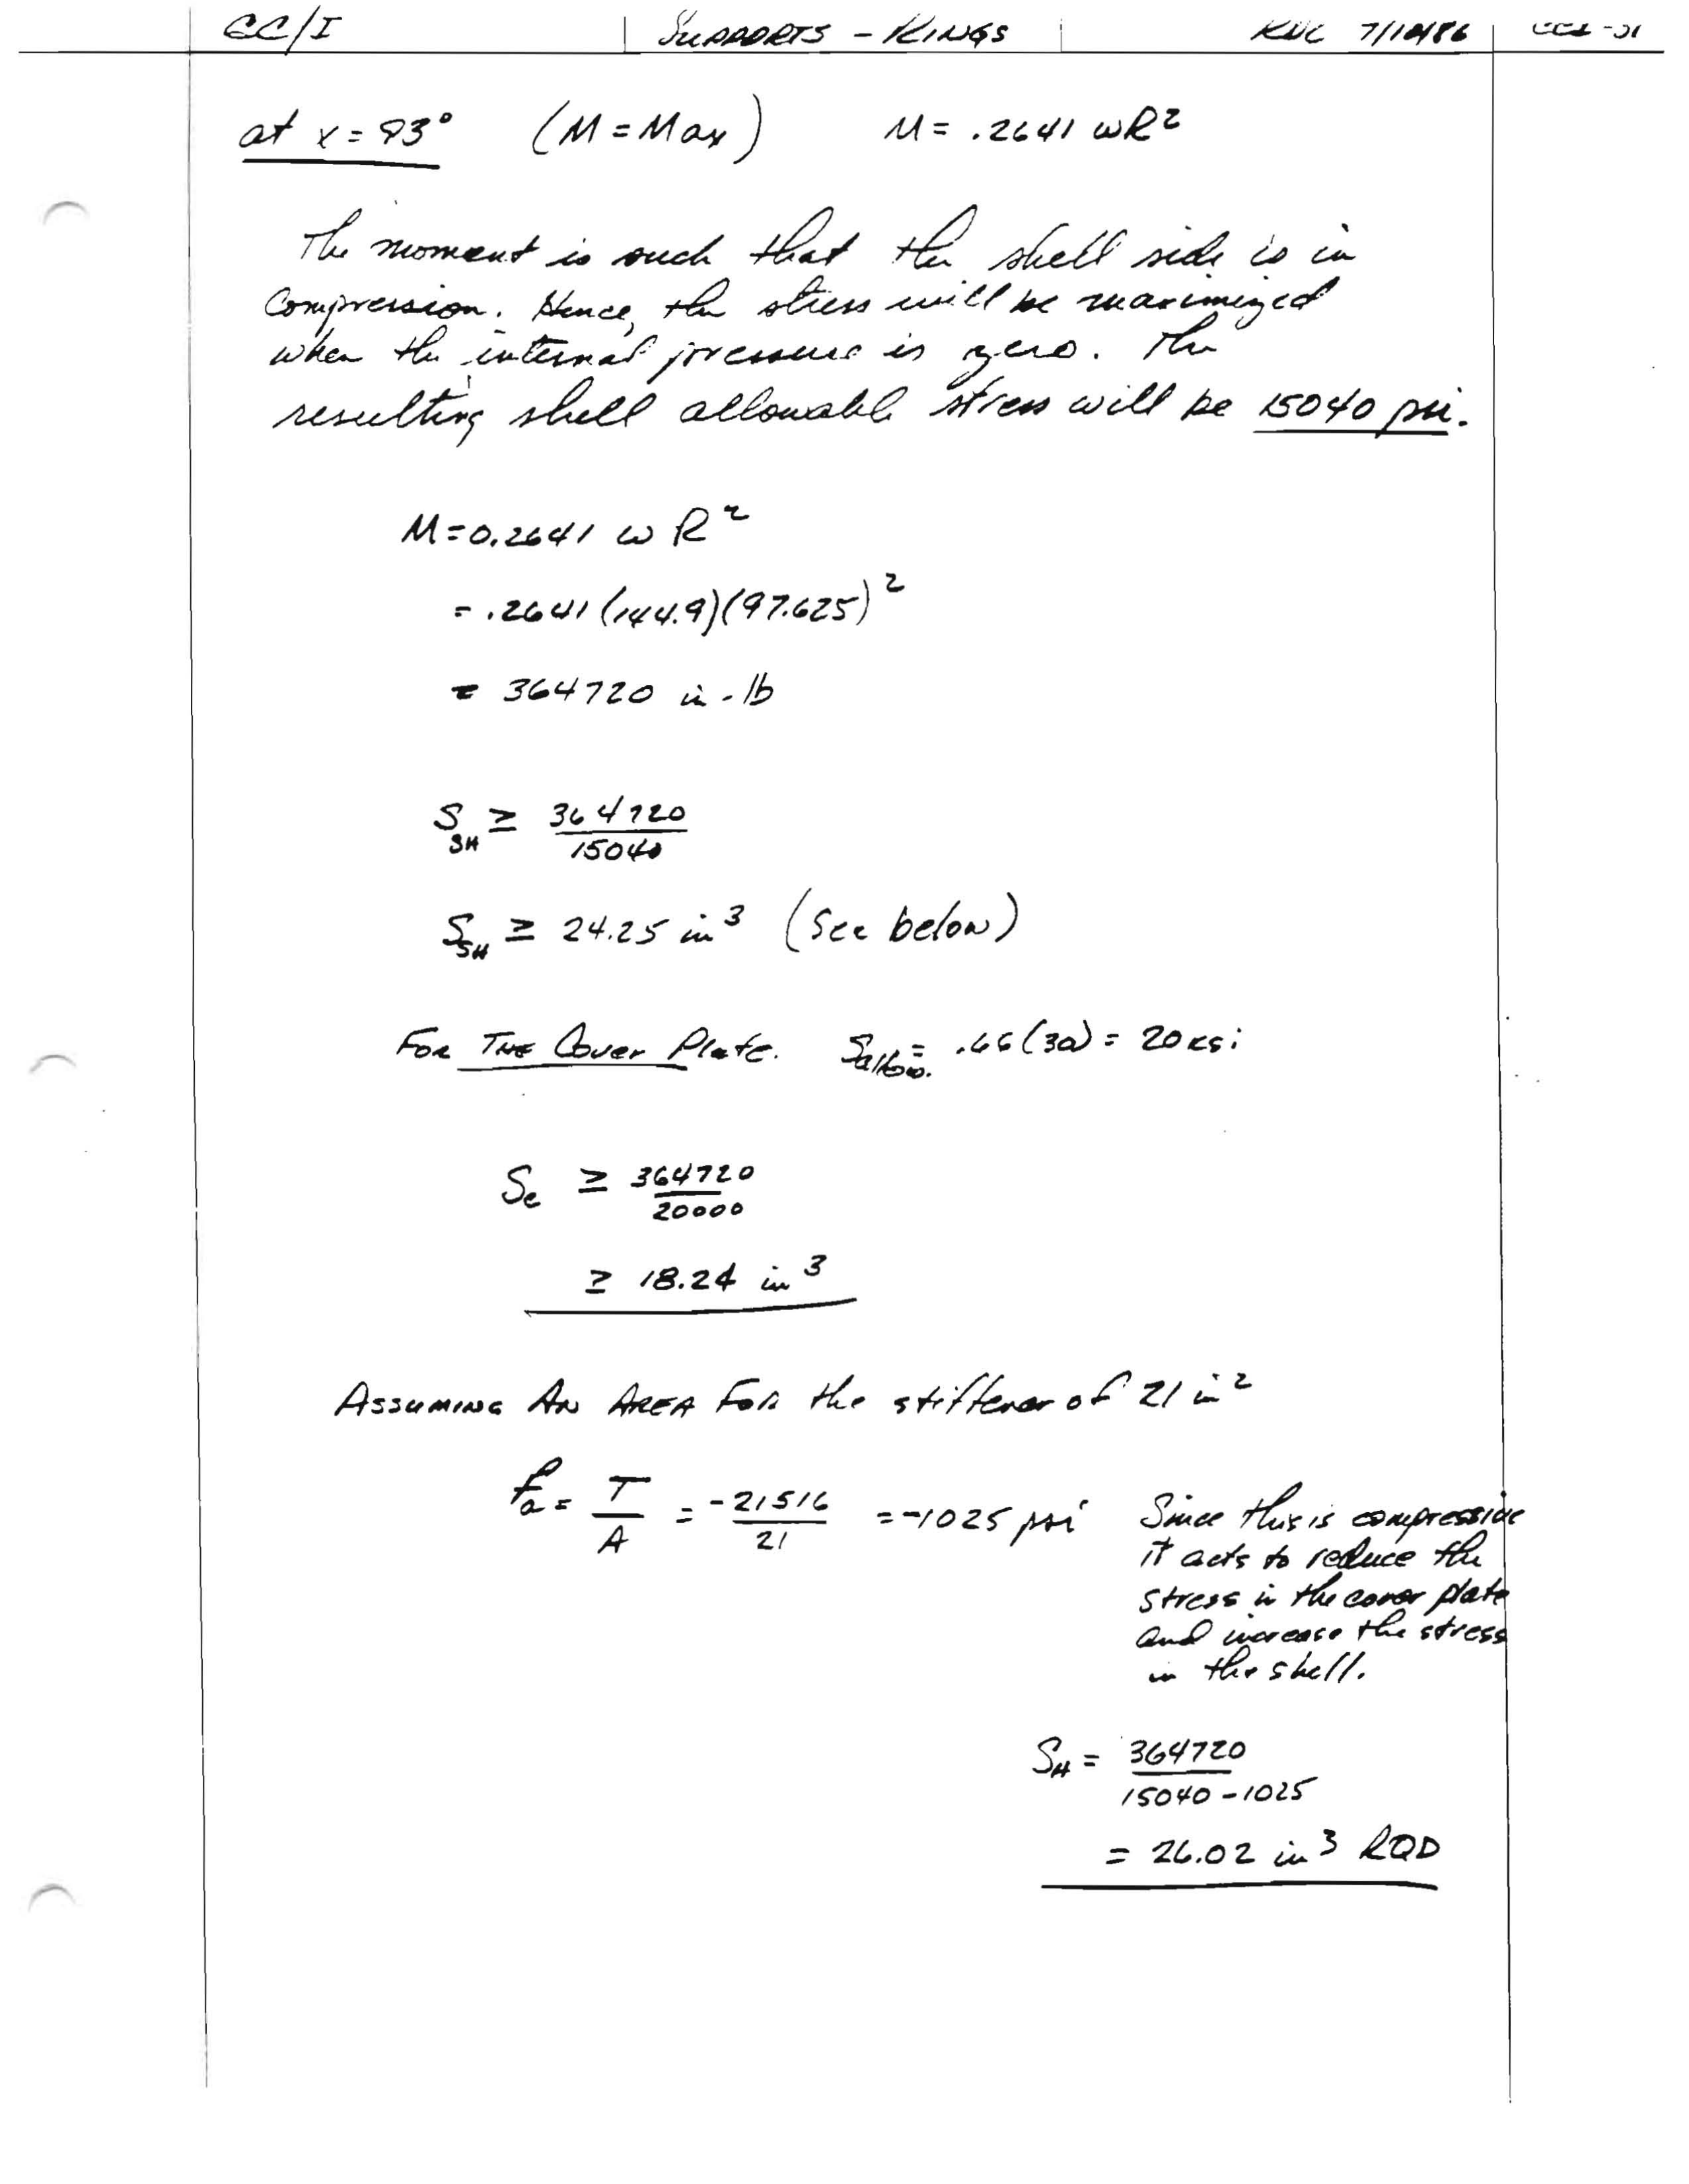 CC/I SUPPORTS - RINGS RNC 7/10/86
at x = 93° (M = Max) M = .2641 ωR²
The moment is such that the shell side is in
Compression. Hence, the stress will be maximized
when the internal pressure is zero. The
resulting shell allowable stress will be 15040 psi.
M = 0.2641 ω R²
= .2641 (144.9)(97.625)²
= 364720 in - lb
S_SH ≥ 364720 / 15040
S_SH ≥ 24.25 in³ (See below)
FOR THE Cover Plate. S_allow. = .66 (30) = 20 ksi
S_c ≥ 364720 / 20000
≥ 18.24 in³
ASSUMING AN AREA FOR the stiffener of 21 in²
f_a = T / A = -21516 / 21 = -1025 psi
Since this is compressive
it acts to reduce the
stress in the cover plate
and increase the stress
in the shell.
S_H = 364720 / 15040 - 1025
= 26.02 in³ RQD